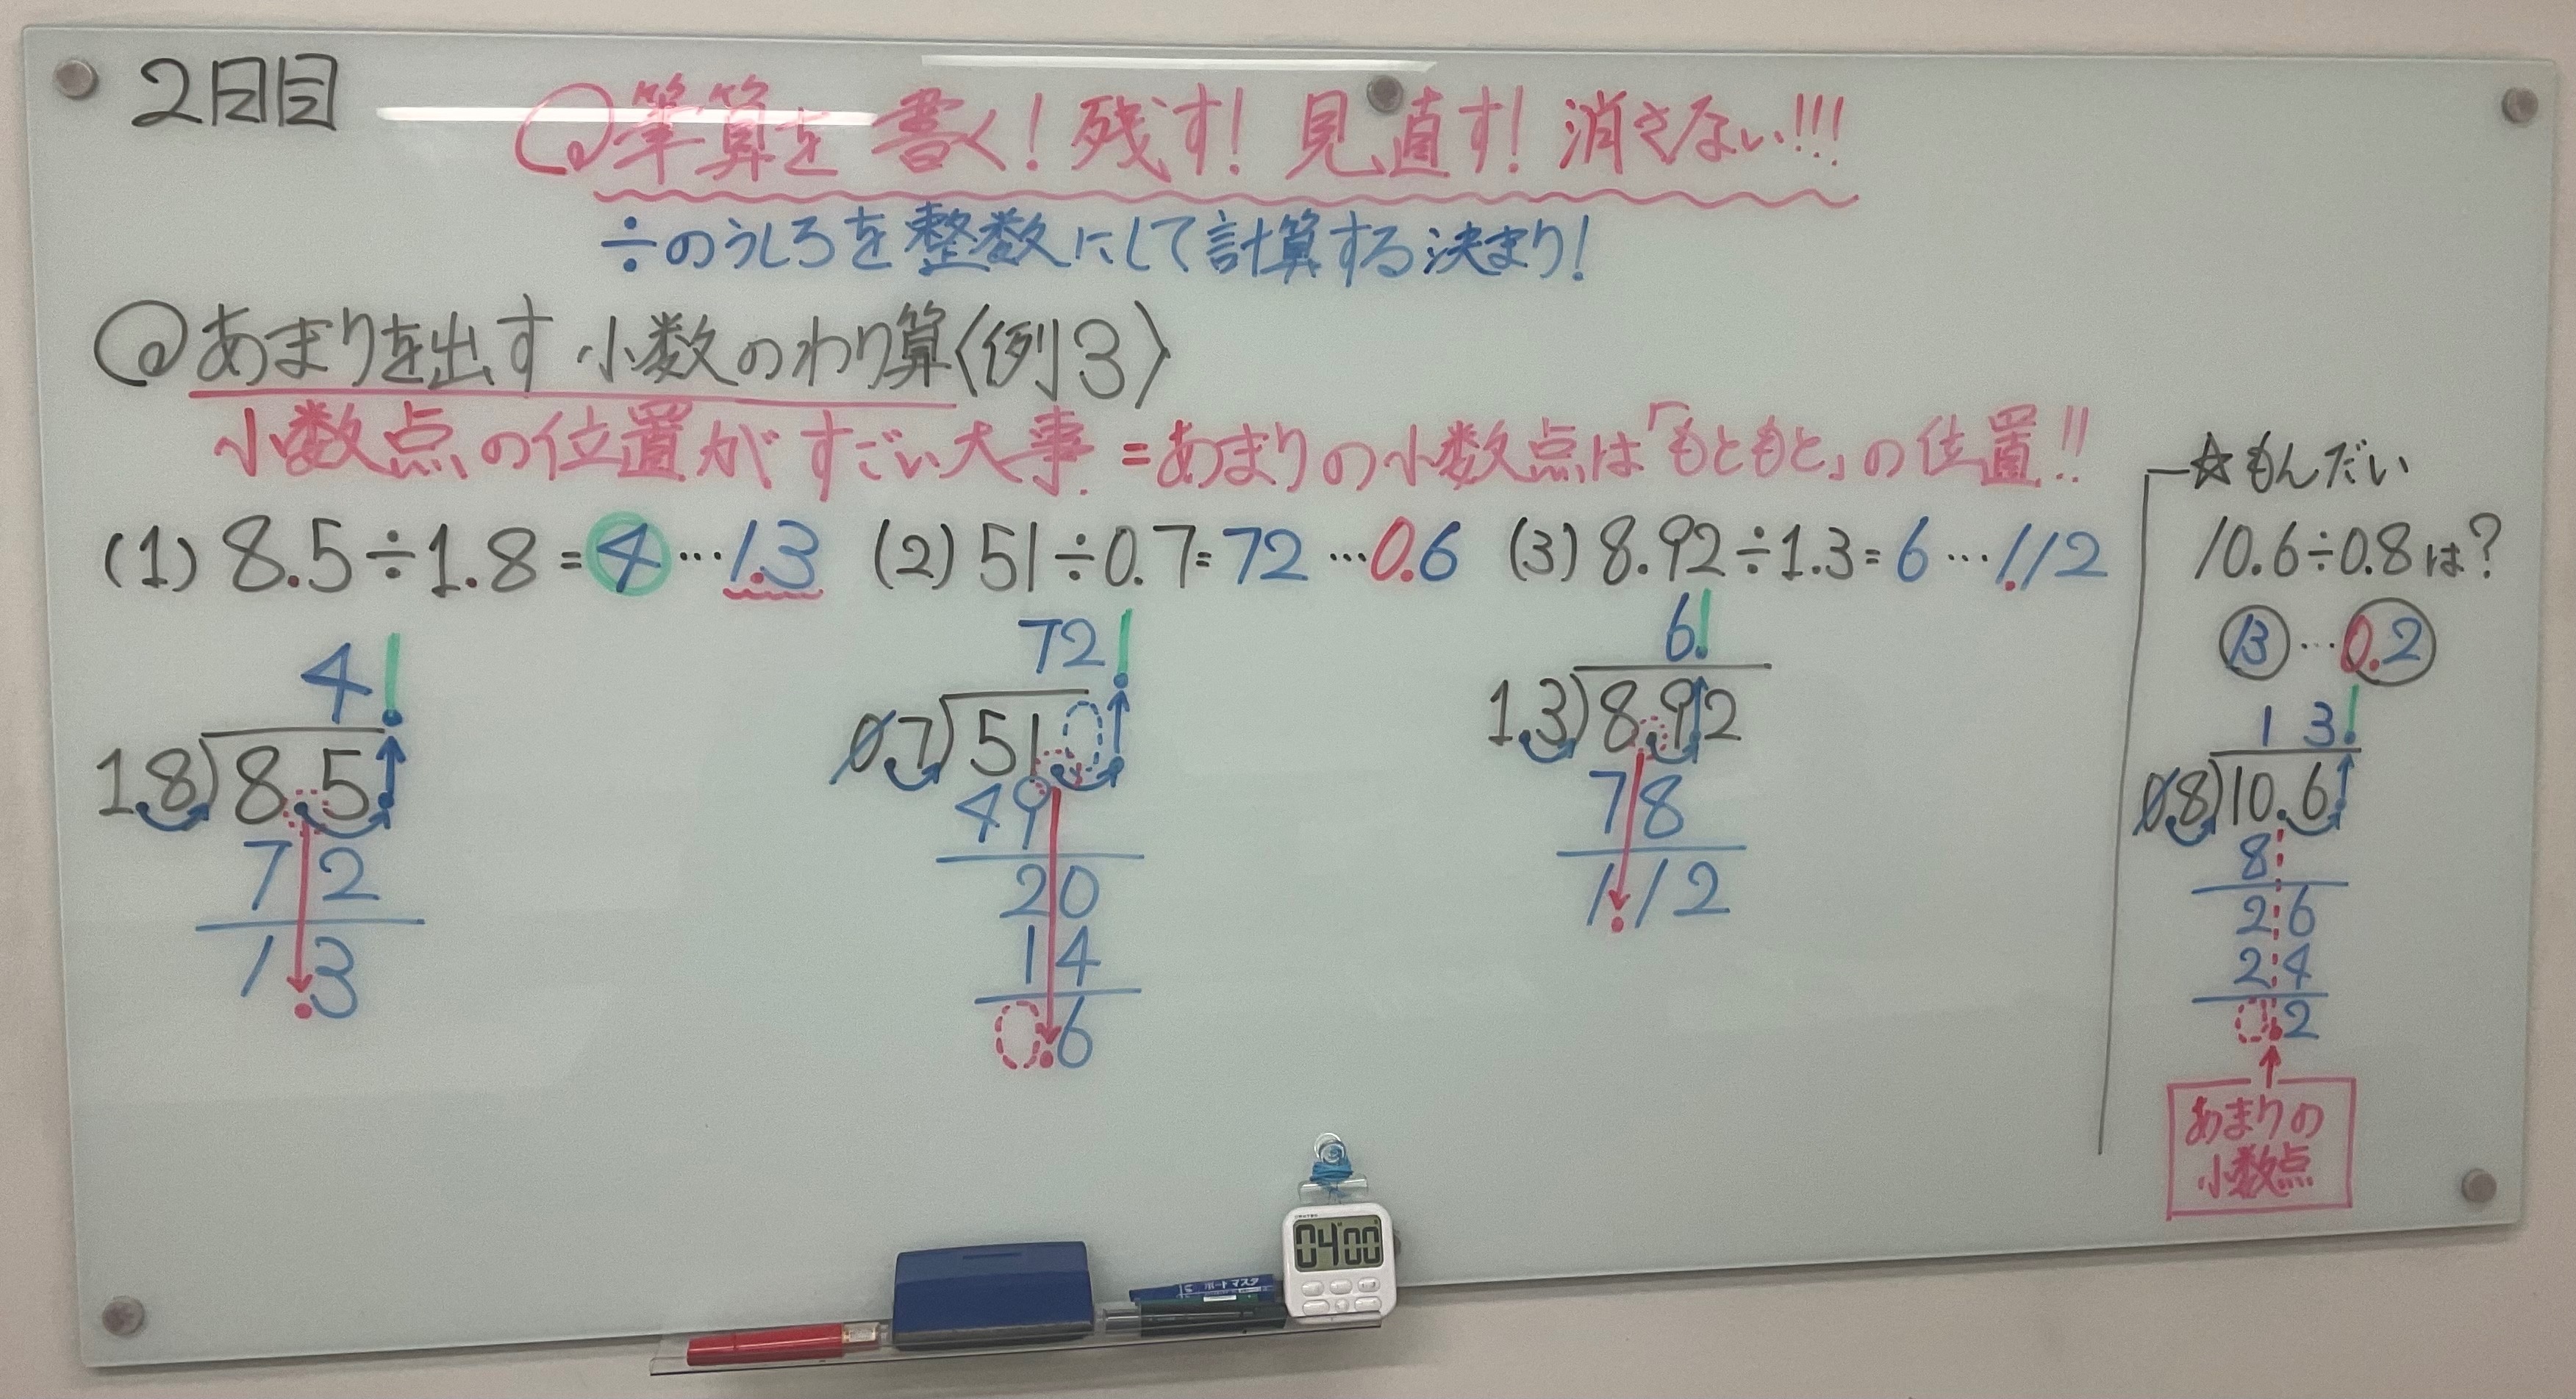 2日目
筆算を書く!残す!見直す!消さない!!!
÷のうしろを整数にして計算する決まり!
あまりを出す小数のわり算〈例3〉
小数点の位置がすごい大事=あまりの小数点は「もともと」の位置!!
(1) 8.5÷1.8=4…1.3
4
1.8)8.5
72
1.3
(2) 51÷0.7=72…0.6
72
0.7)510
49
20
14
0.6
(3) 8.92÷1.3=6…1.12
6
1.3)8.92
78
1.12
☆もんだい
10.6÷0.8は?
13…0.2
13
0.8)10.6
8
26
24
0.2
あまりの
小数点
04 00
ボードマスター